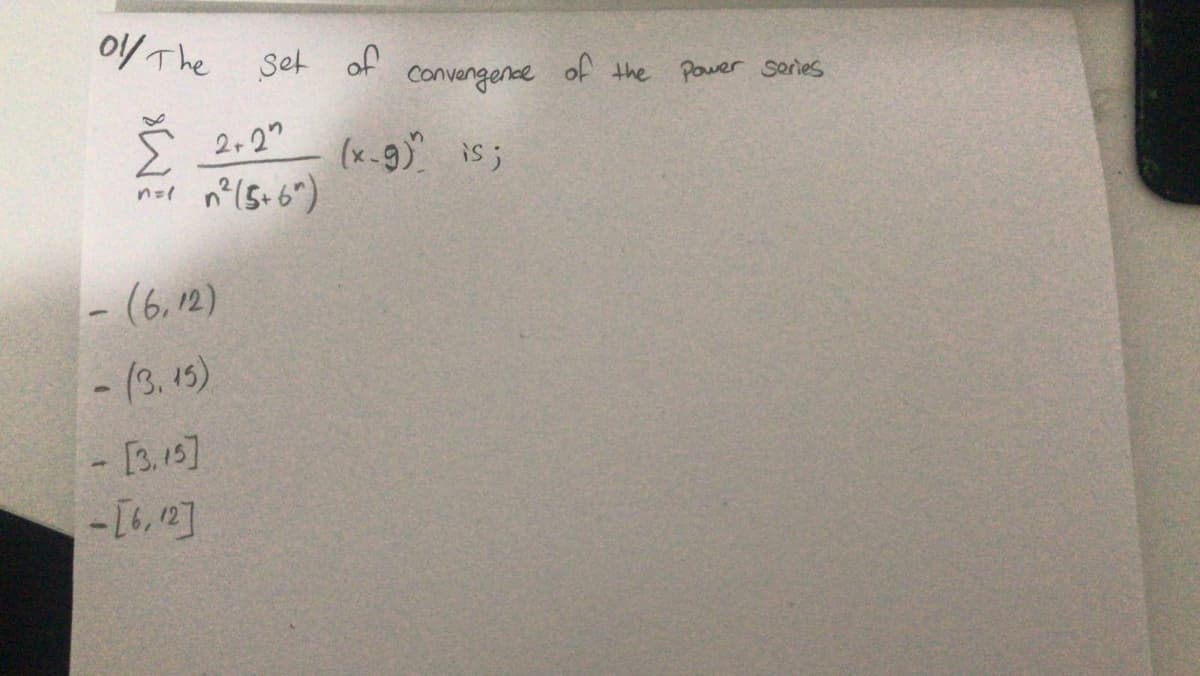 01/ The set of convengence of the power series
∞
Σ 2+2ⁿ / n²(5+6ⁿ) (x-9)ⁿ is;
n=1
- (6,12)
- (3,15)
- [3,15]
- [6,12]